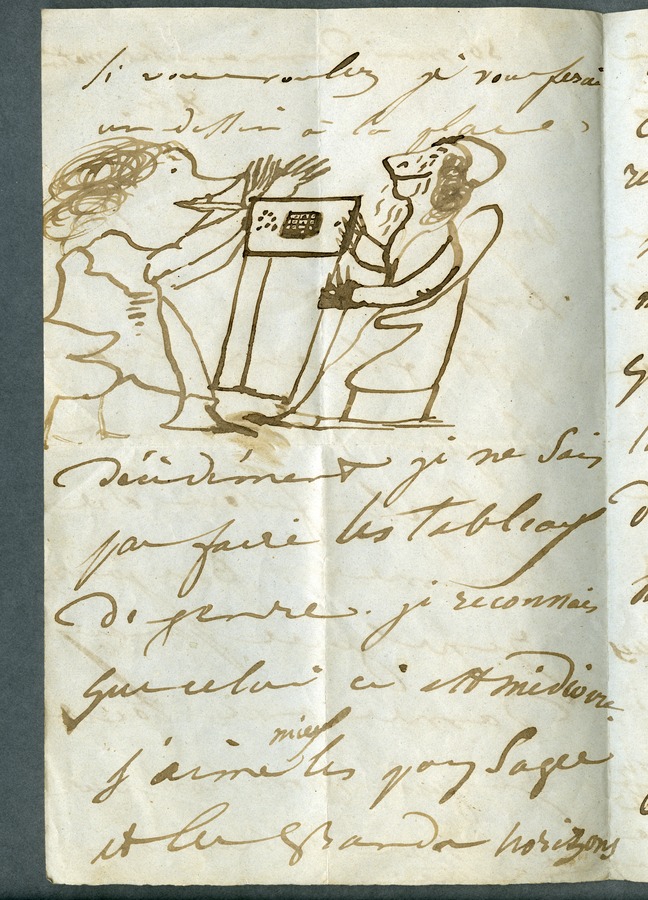 Si vous voulez je vous ferai
un dessin à la place
Décidément je ne sais
pas faire les tableaux
de genre. je reconnais
que celui ci est médiocre.
j'aime mieux les paysages
et les grands horizons